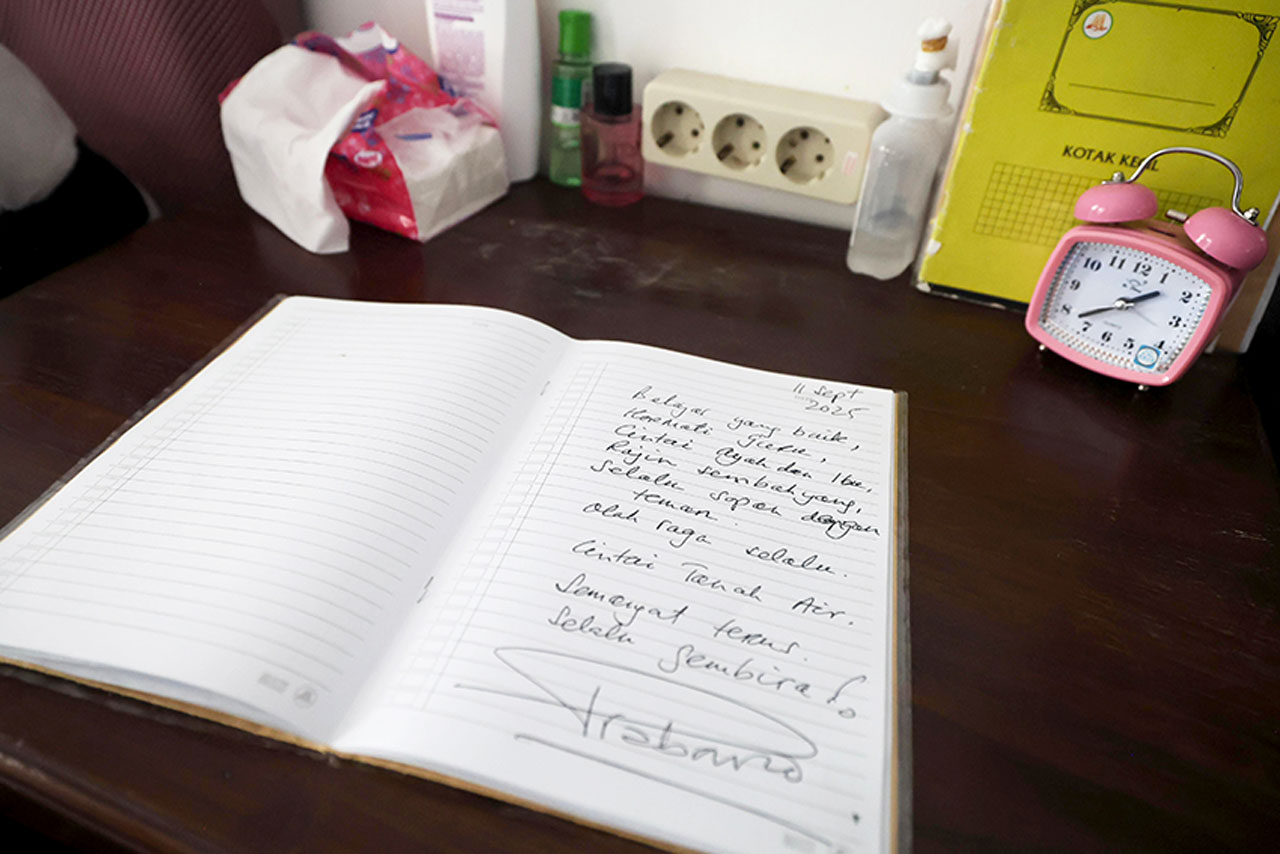 KOTAK KECIL
11 12 1
10 2
9 3
8 4
7 6 5
11 Sept
2025
Belajar yang baik,
Hormati guru,
Cintai ayah dan Ibu,
Rajin sembahyang,
Selalu sopan dengan
teman.
Olah raga selalu.
Cintai Tanah Air.
Semangat terus.
Selalu gembira!
Prabowo